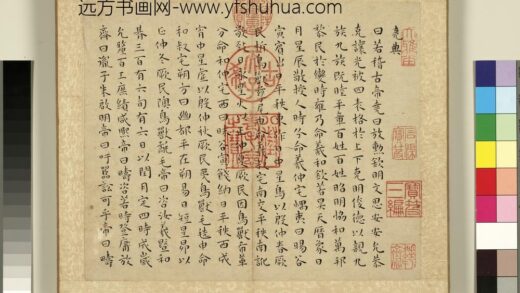 远方书画网-www.yfshuhua.com
堯典
曰若稽古帝堯曰放勲欽明文思安安允恭
克讓光被四表格于上下克明俊德以親九
族九族既睦平章百姓百姓昭明協和萬邦
黎民於變時雍乃命羲和欽若昊天厯象日
月星辰敬授人時分命羲仲宅嵎夷曰暘谷
寅賓出日平秩東作日中星鳥以殷仲春厥
民析鳥獸孳尾申命羲叔宅南交平秩南訛
敬致日永星火以正仲夏厥民因鳥獸希革
分命和仲宅西曰昧谷寅餞納日平秩西成
宵中星虛以殷仲秋厥民夷鳥獸毛毨申命
和叔宅朔方曰幽都平在朔易日短星昴以
正仲冬厥民隩鳥獸氄毛帝曰咨汝羲暨和
朞三百有六旬有六日以閏月定四時成歲
允釐百工庶績咸熙帝曰疇咨若時登庸放
齊曰胤子朱啟明帝曰吁嚚訟可乎帝曰疇
寶笈
三編